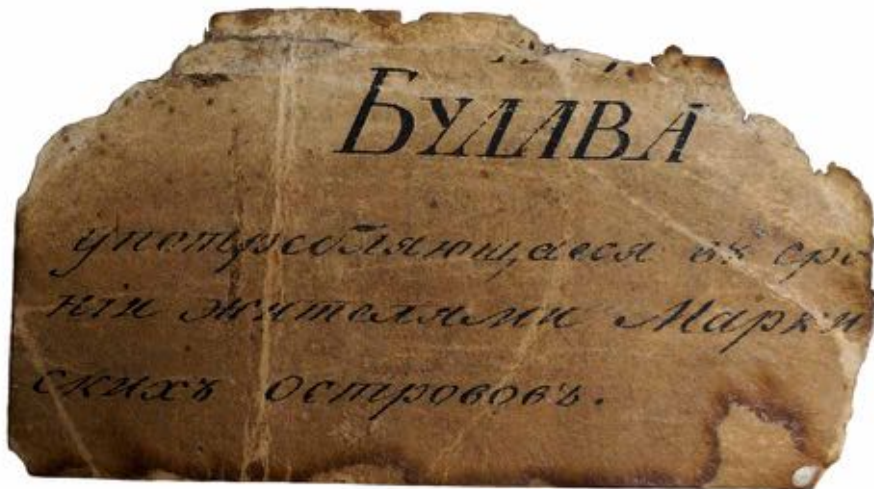 БУЛАВА
употребляющаеся въ сра
ніи жителями Марки
скихъ острововъ.